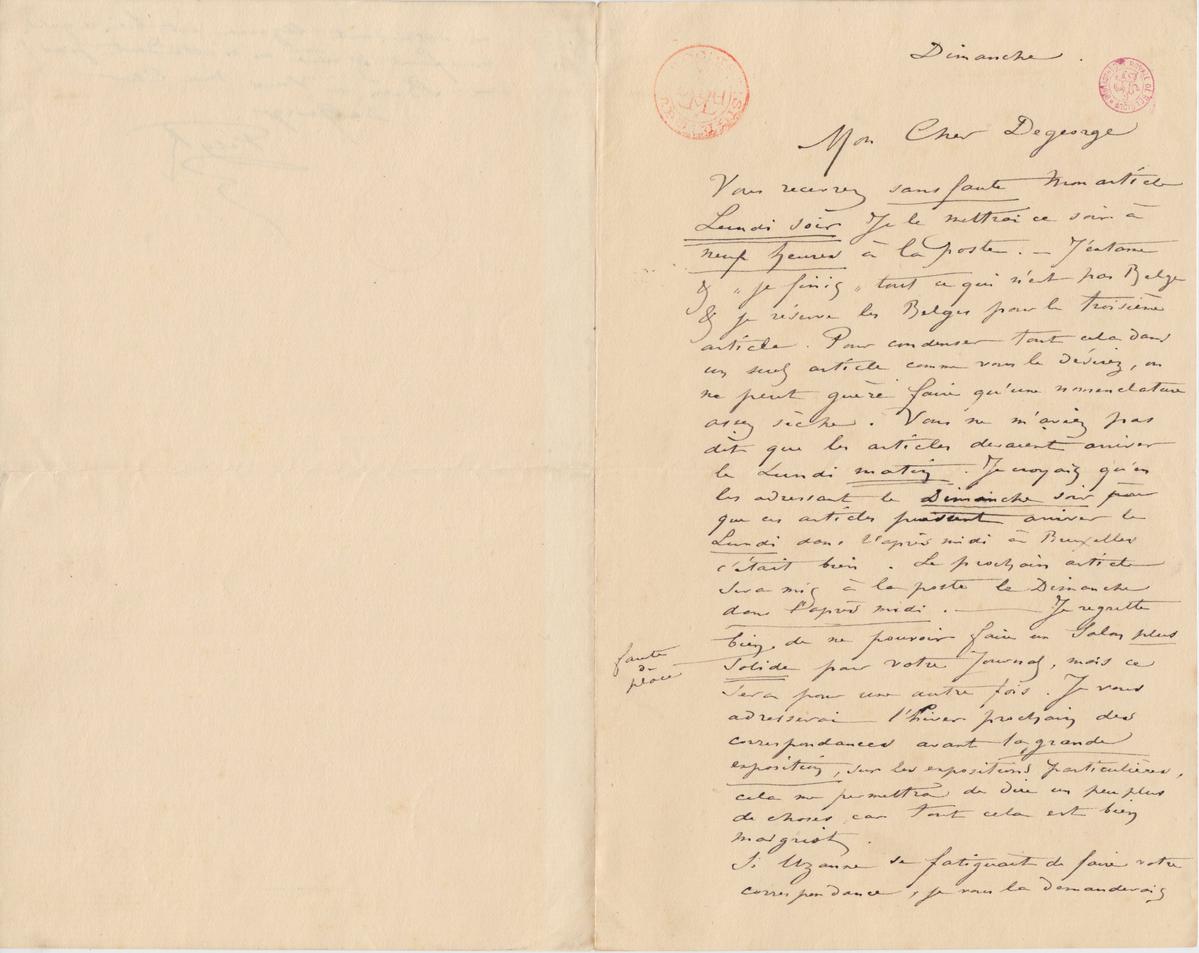 Dimanche.
Mon Cher Degeorge
Vous recevrez sans faute Mon article
Lundi soir Je le mettrai ce soir à
neuf heures à la poste. — J'entame
& "je finis" tout ce qui n'est pas Belge
& je réserve les Belges pour le troisième
article. Pour condenser tout cela dans
un seul article comme vous le désirez, on
ne peut guère faire qu'une nomenclature
assez sèche. Vous ne m'aviez pas
dit que les articles devaient arriver
le Lundi matin. Je croyais qu'en
les adressant le Dimanche soir pour
que ces articles puissent arriver le
Lundi dans l'après midi à Bruxelles
c'était bien. Le prochain article
sera mis à la poste le Dimanche
dans l'après midi. — Je regrette
bien, de ne pouvoir faire un Salon plus
faute
de
place
Solide pour votre Journal, mais ce
sera pour une autre fois. Je vous
adresserai l'hiver prochain des
correspondances avant la grande
exposition, sur les expositions particulières,
cela me permettra de dire un peu plus
de choses car tout cela est bien
maigriot.
Si Uzanne se fatiguait de faire votre
correspondance, je vous la demanderais